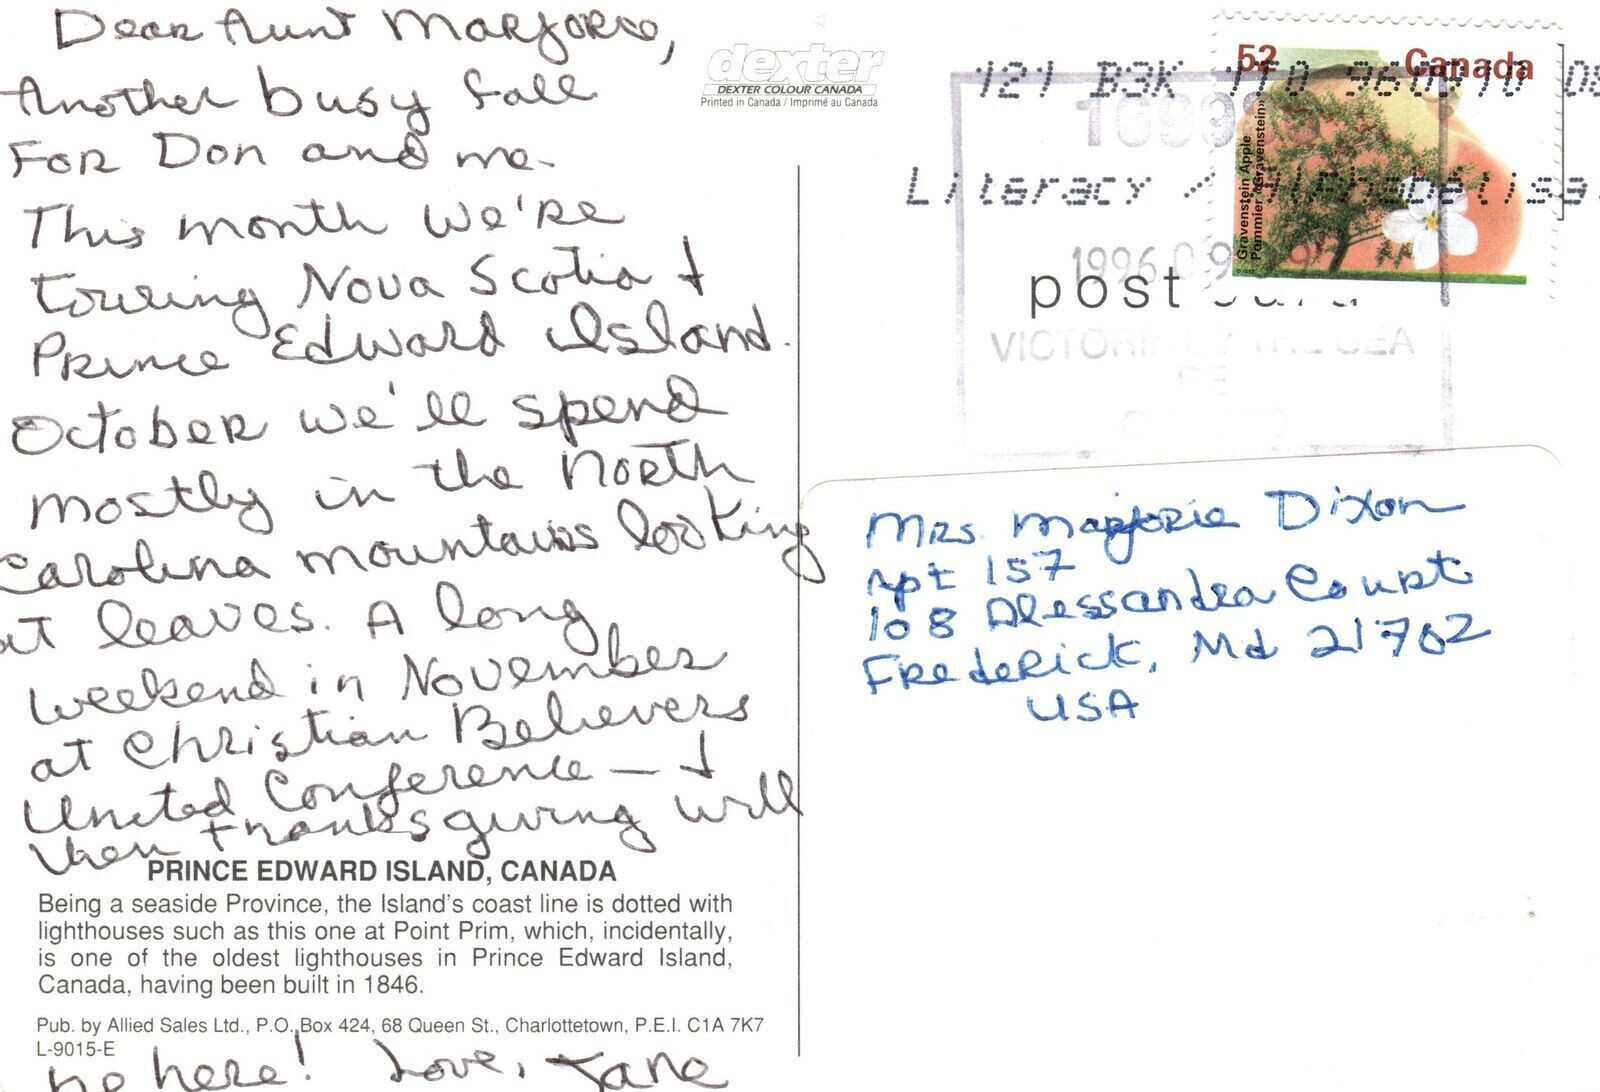 Dear Aunt Marjorie,
Another busy fall
For Don and me.
This month we're
touring Nova Scotia +
Prince Edward Island.
October we'll spend
mostly in the North
Carolina mountains looking
at leaves. A long
weekend in November
at Christian Believers
United Conference — +
then thanksgiving will
be here! Love, Jane
PRINCE EDWARD ISLAND, CANADA
Being a seaside Province, the Island's coast line is dotted with
lighthouses such as this one at Point Prim, which, incidentally,
is one of the oldest lighthouses in Prince Edward Island,
Canada, having been built in 1846.
Pub. by Allied Sales Ltd., P.O. Box 424, 68 Queen St., Charlottetown, P.E.I. C1A 7K7
L-9015-E
dexter
DEXTER COLOUR CANADA
Printed in Canada / Imprimé au Canada
121 B3K
Literacy /
52 Canada
Gravenstein Apple
Pommier «Gravenstein»
1996.09
post card
VICTORIA BY THE SEA
PE
Mrs. Marjorie Dixon
Apt 157
108 Alessandra Court
Frederick, Md 21702
USA